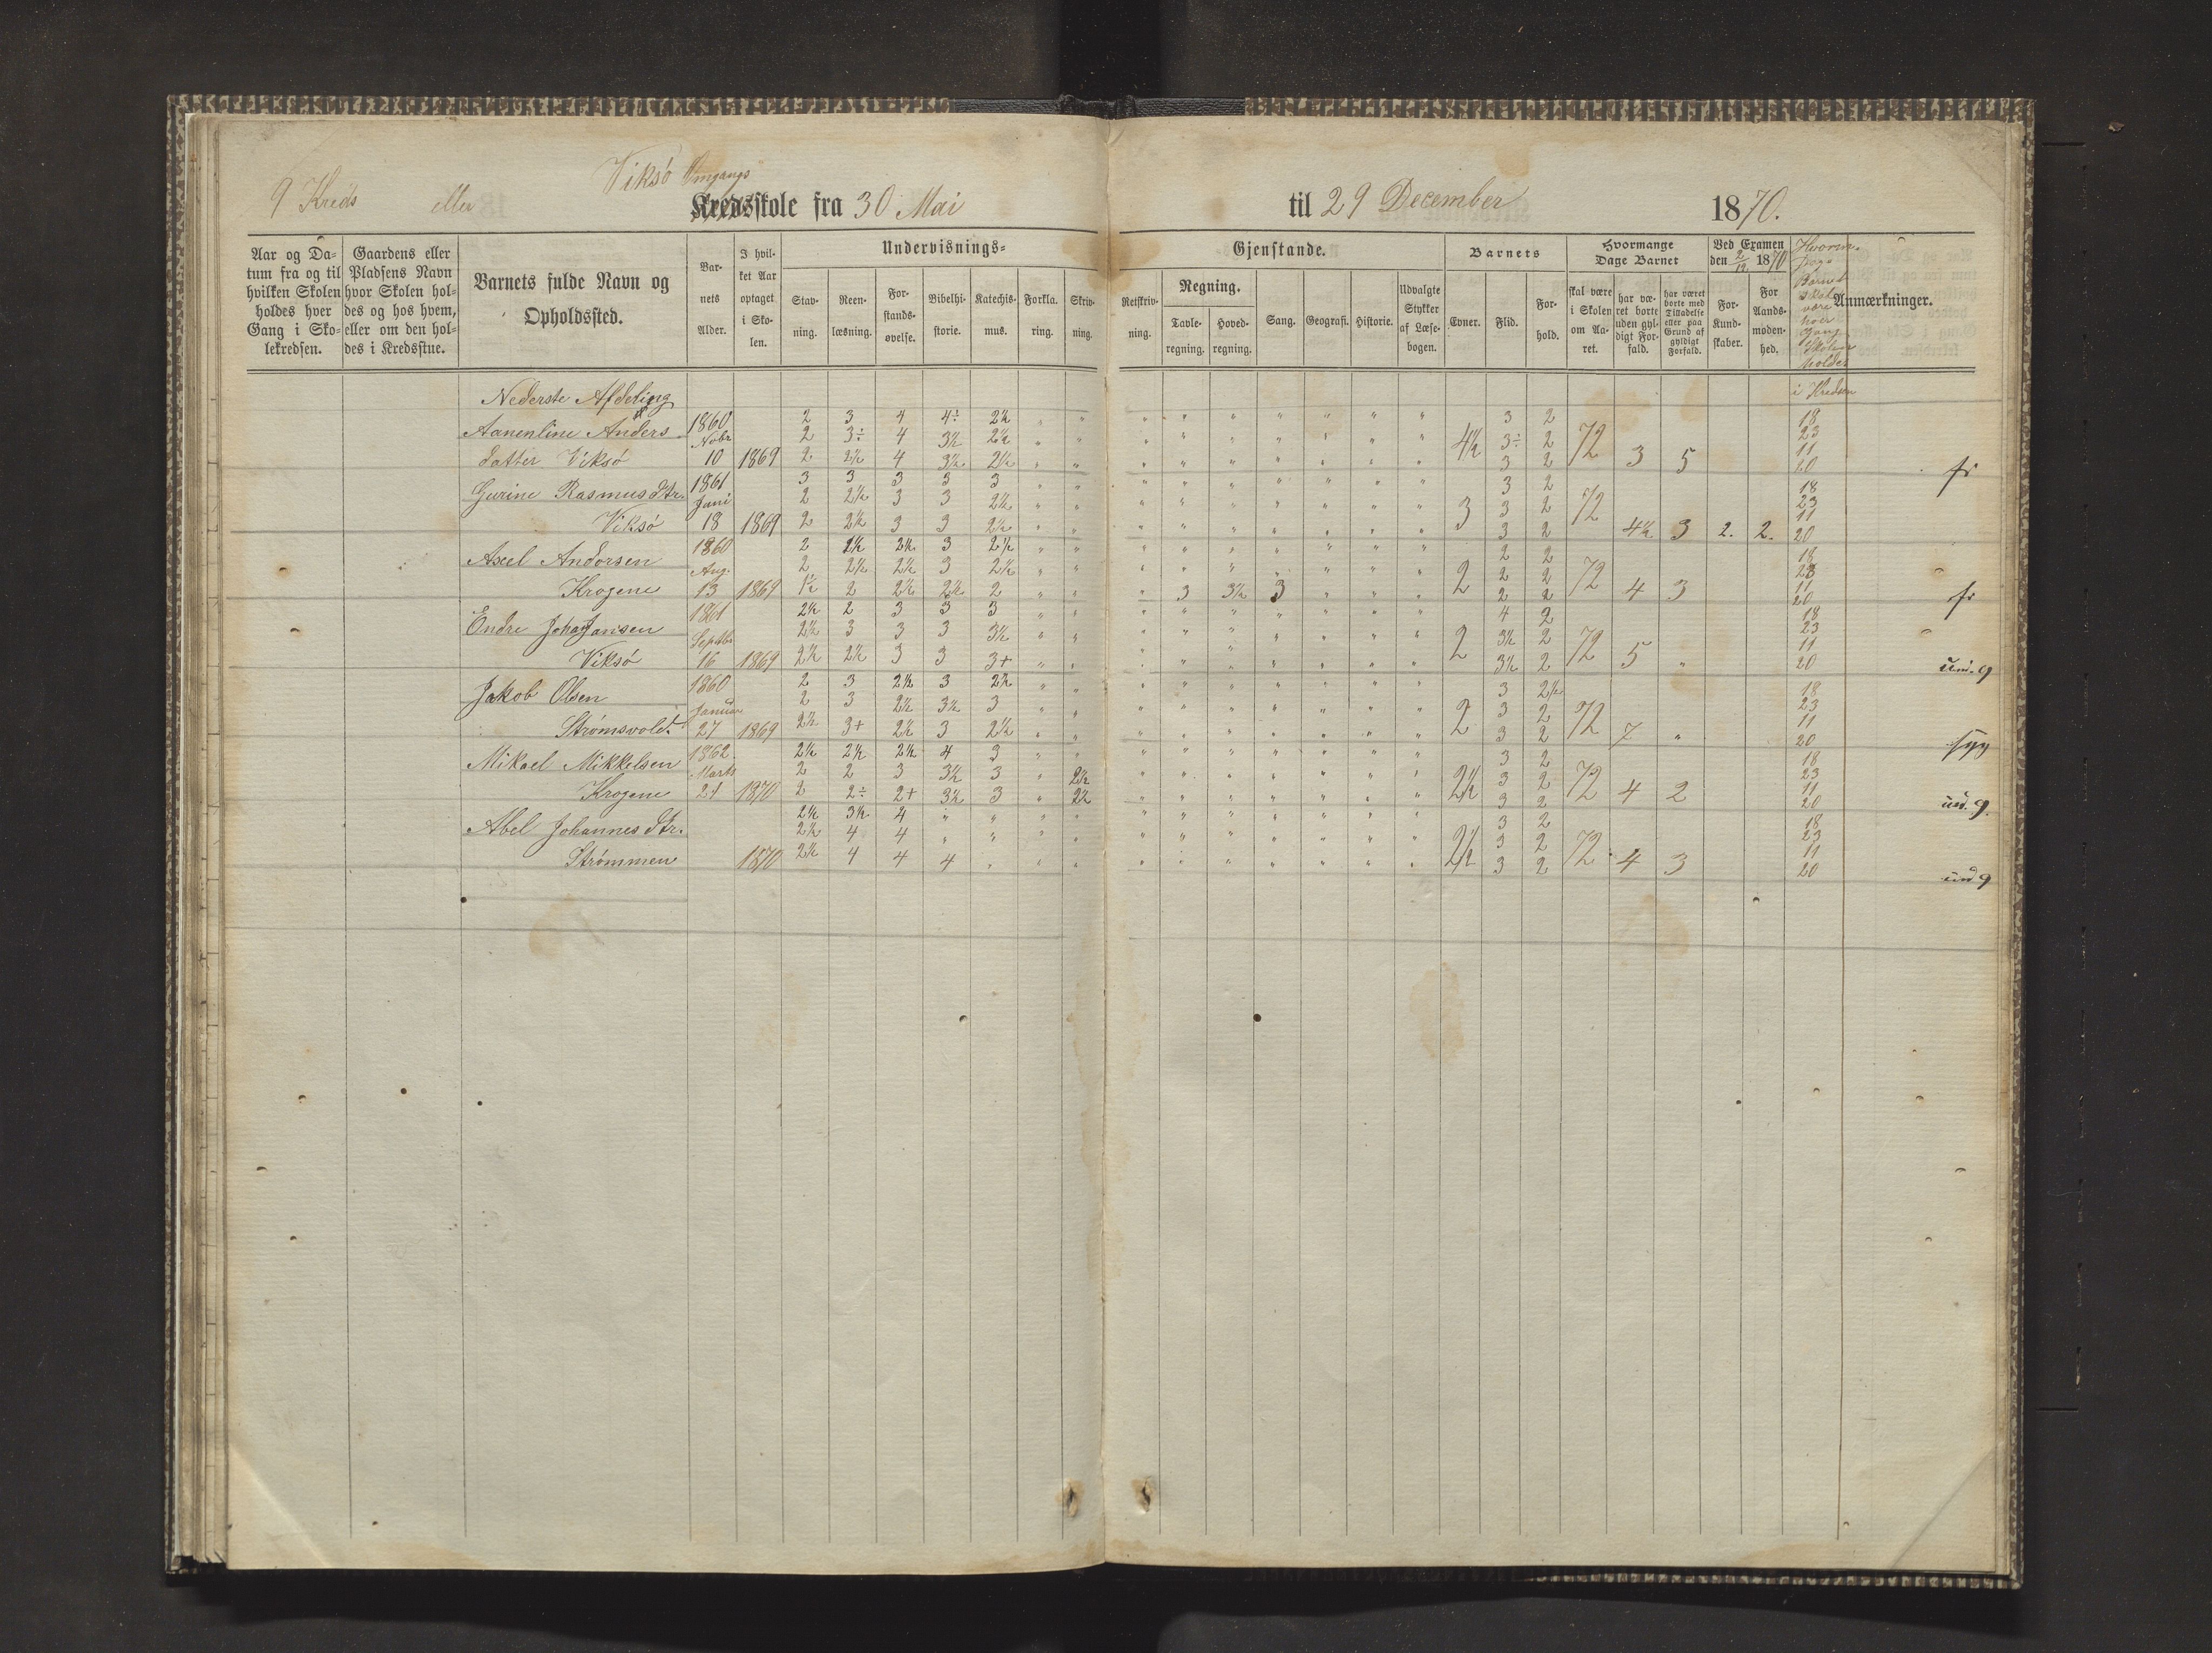 9 Kreds eller Viksö Omgangs
Kredsskole fra 30 Mai til 29 December 1870.
Aar og Da=
tum fra og til
hvilken Skolen
holdes hver
Gang i Sko=
lekredsen.
Gaardens eller
Pladsens Navn
hvor Skolen hol=
des og hos hvem,
eller om den hol=
des i Kredsstue.
Barnets fulde Navn og
Opholdssted.
Bar-
nets
Alder.
I hvil-
ket Aar
optaget
i Sko-
len.
Undervisnings=
Stav-
ning.
Reen-
læsning.
For-
stands-
øvelse.
Bibelhi-
storie.
Katechis-
mus.
Forkla-
ring.
Skriv-
ning.
Gjenstande.
Retskriv-
ning.
Regning.
Tavle-
regning.
Hoved-
regning.
Sang.
Geografi.
Historie.
Udvalgte
Stykker
af Læse-
bogen.
Barnets
Evner.
Flid.
For-
hold.
Hvormange
Dage Barnet
skal være
i Skolen
om Aa-
ret.
har væ-
ret borte
uden gyl-
digt For-
fald.
har været
borte med
Tilladelse
eller paa
Grund af
gyldigt
Forfald.
Ved Examen
den 2/12 1870
For
Kund-
skaber.
For
Aands-
moden-
hed.
Hvorm.
Dage
Barnet
skal
være
hver
Gang
Skolen
holdes
i Kredsen
Anmærkninger.
Nederste Afdeling
1860 2 3 4 4÷ 2½ " " " " " " " " " 3 2 18
Aanenline Anders Nobr 2 3÷ 4 3½ 2½ " " " " " " " " " 4½ 3÷ 2 72 23
datter Viksö 10 1869 2 2½ 4 3½ 2½ " " " " " " " " " 3 2 3 5 11
20 fr
1861 3 3 3 3 3 " " " " " " " " " 3 2 18
Gurine Rasmusdtr. Juni 2 2½ 3 3 2½ " " " " " " " " " 3 3 2 72 23
Viksö 18 1869 2 2½ 3 3 2½ " " " " " " " " " 3 2 4½ 3 2. 2. 11
20
1860 2 2½ 2½ 3 2½ " " " " " " " " " 2 2 18
Axel Andorsen Aug. 2 2½ 2½ 3 2½ " " " " " " " " " 2 2 2 72 23
Krogene 13 1869 1½ 2 2½ 2½ 2 " " " 3 3½ 3 " " " 2 2 4 3 11
20 fr
1861 2½ 2 3 3 3 " " " " " " " " " 4 2 18
Endre Johansen Septbr 2½ 3 3 3 3½ " " " " " " " " " 2 3½ 2 72 23
Viksö 16 1869 2½ 2½ 3 3 3+ " " " " " " " " " 3½ 2 5 " 11
20
1860 2 3 2½ 3 2½ " " " " " " " " " 3 2½ 18
Jakob Olsen Januar 2 3 2½ 3½ 3 " " " " " " " " " 2 3 2 72 23
Strömsvold. 27 1869 2½ 3+ 2½ 3 2½ " " " " " " " " " 3 2 7 " 11
20
1862. 2½ 2½ 2½ 4 3 " " " " " " " " " 3 2 18
Mikael Mikkelsen Marts 2 2 3 3½ 3 " 2½ " " " " " " " 2½ 3 2 72 23
Krogene 21 1870 2 2÷ 2+ 3½ 3 " 2½ " " " " " " " 3 2 4 2 11
20
2½ 3½ 4 " " " " " " " " " " " 3 2 18
Abel Johannesdtr. 2½ 4 4 " " " " " " " " " " " 2½ 3 2 72 23
Strömmen 1870 2½ 4 4 4 " " " " " " " " " " 3 2 4 3 11
20